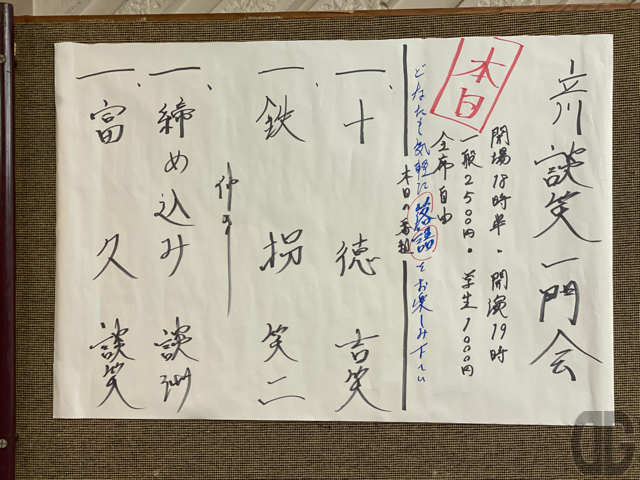 立川談笑一門会
本日
開場18時半・開演19時
一般2500円・学生1000円
全席自由
どなたも気軽に落語をお楽しみ下さい
本日の番組
一、十徳 吉笑
一、鉄拐 笑二
仲入り
一、締め込み 談洲
一、富久 談笑